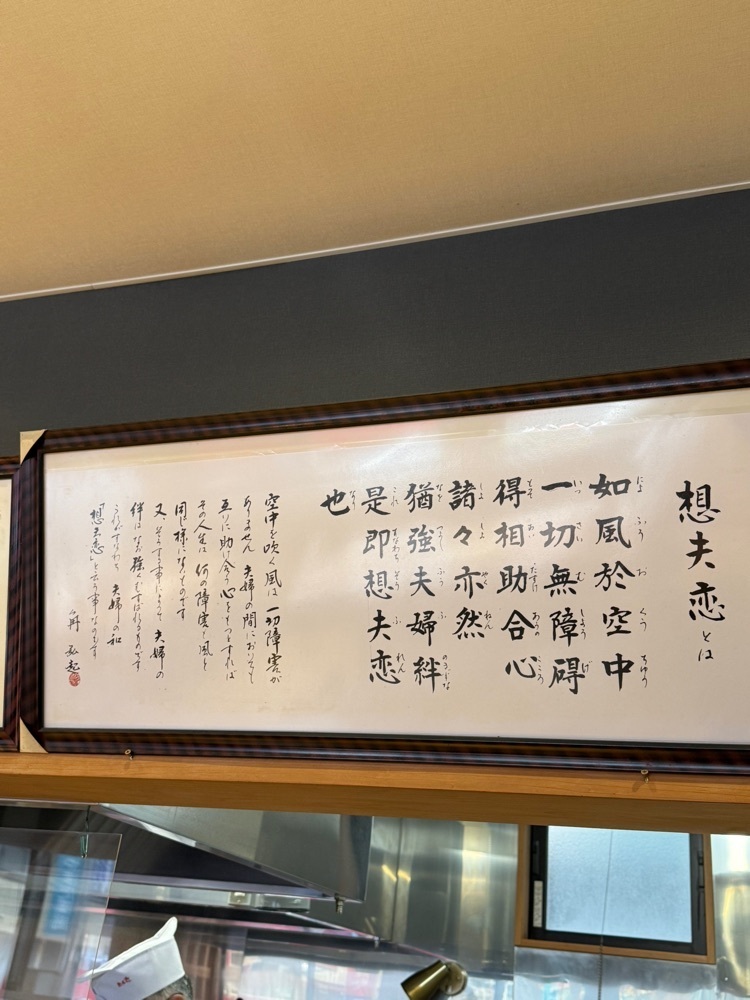 想夫恋とは
如風於空中
一切無障碍
得相助合心
諸々亦然
猶強夫婦絆
是即想夫恋
也
空中を吹く風は 一切障害が
ありません 夫婦の間においても
互いに助け合う心をもつすれば
その人生は 何の障害も風と
同じ様になくものです
又、そうする事によって 夫婦の
絆は なお強くむすばれるものです
これがすなわち 夫婦の和
「想夫恋」と云う事なのです